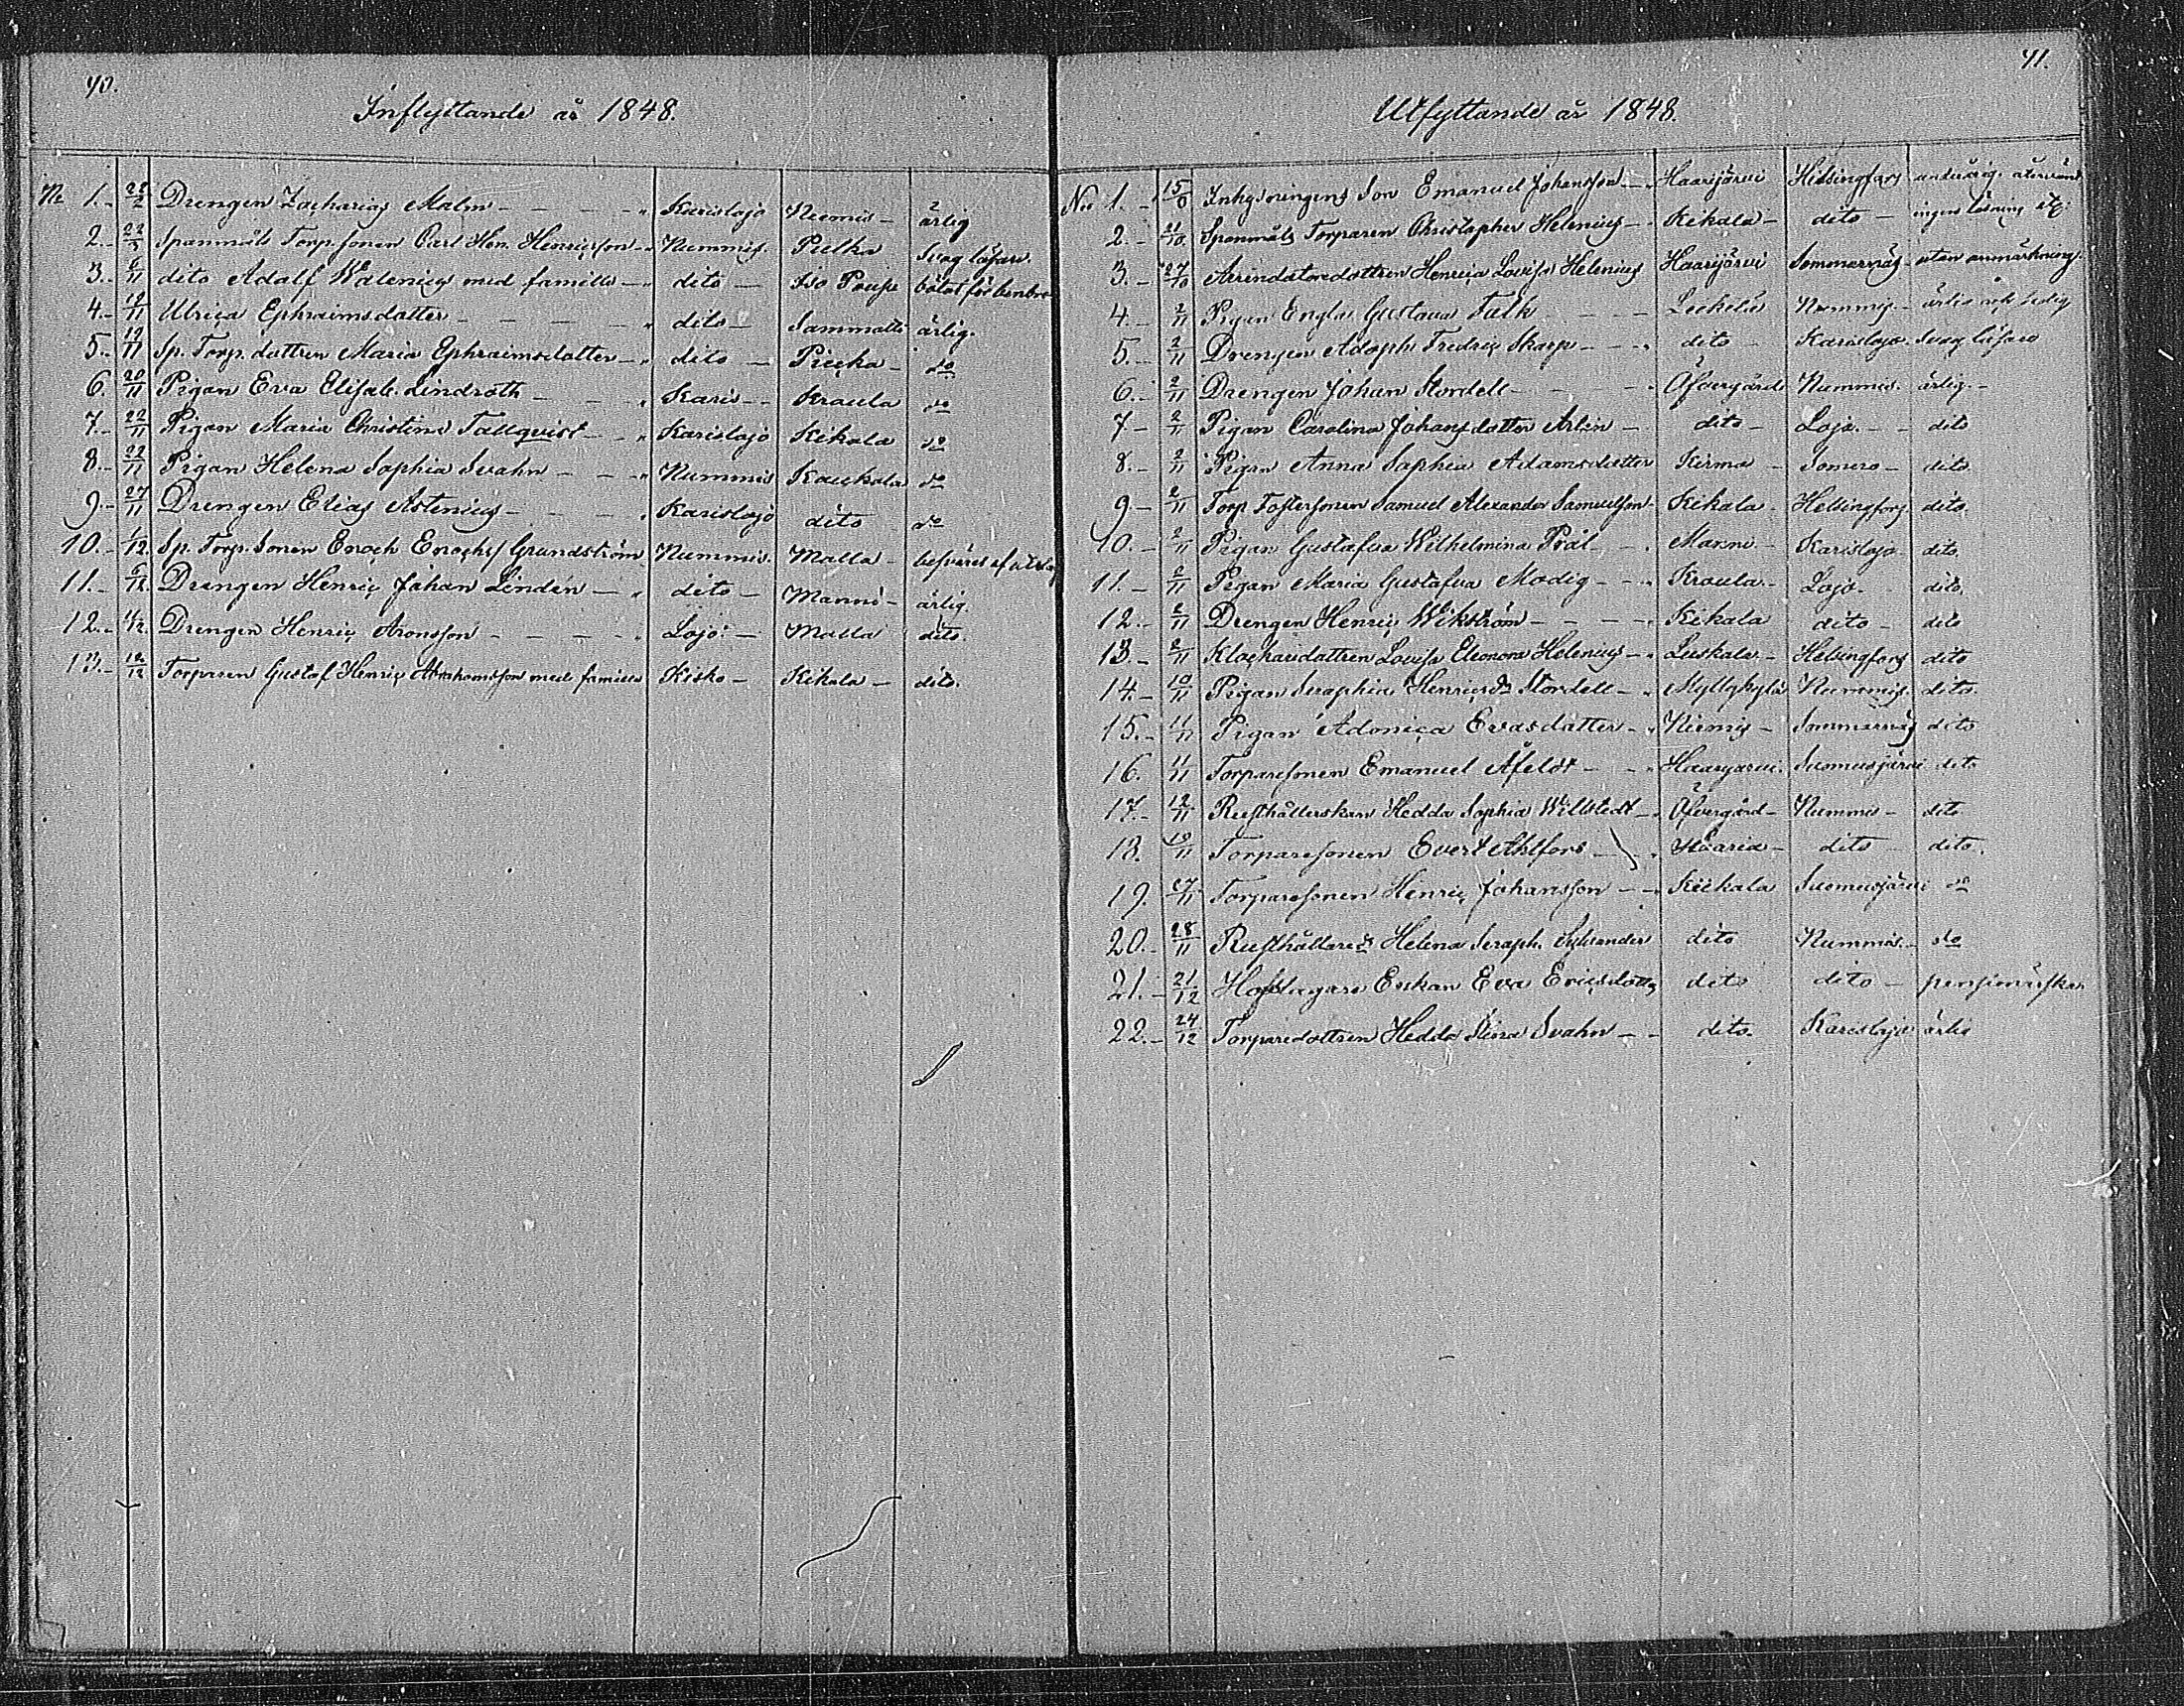 40.
Inflyttande år 1848.
No 1. 22/2 Drengen Zacharias Malm Karislojo Niemis ärlig
2. 22/3 Spanmåls Torp.sonen Carl Hen. Henricsson Nummis. Pielka Svag läsare.
3. 6/11 dito Adolf Walenius med famille dito Iso Pouse bötat för
4. 12/11 Ulrica Ephraimsdotter dito Sammatti ärlig.
5. 19/11 Sp. Torp. dottren Maria Ephraimsdotter dito do
6. 20/11 Pigan Eva Elisab. Lindroth Karis Kraula do
7. 22/11 Pigan Maria Christina Tallqvist Karislojo Kikala do
8. 22/11 Pigan Helena Sophia Svahn Nummis Kaukola do
9. 27/11 Drengen Elias Astenius Karislojo dito do
10. 1/12. Sp. Torp. Sonen Enoch Enochs Grundström Nummis. Malla besväras af
11. Drengen Henric Johan Lindén dito Mannis ärlig.
12. Drengen Henric Aronsson Lojo Malla dito.
13. 12/12 Torparen Gustaf Henric Abrahamsson med famille Kisko Kikala dito.
41.
Utflyttande år 1848.
No 1. Inhysningens Son Emanuel Johansson Haarijärvi Helsingfors
2. 21/10 Spanmåls Torparen Christopher Helenius Kikala dito ingen läsning
3. 27/10 Arrendatorsdottren Henrica Lovisa Helenius Haarijärvi Sommarnäs utan anmärkning.
4. 2/11 Pigan Engla Gustava Falk Leikilä Nummis ärlig och ledig
5. 2/11 Drengen Adolph Fredric Skarp dito Karislojo Svag läsare
6. 2/11 Drengen Johan Stordell Öfvergård Nummis. ärlig.
7. 2/11 Pigan Carolina Johansdotter Arlin dito Lojo. dito
8. 2/11 Pigan Anna Sophia Adamsdotter Kirma Somero dito.
9. 2/11 Torp. Fostersonen Samuel Alexander Samuelsson Kikala Helsingfors dito.
10. 2/11 Pigan Gustafva Wilhelmina Prål Manni Karislojo dito.
11. 2/11 Pigan Maria Gustafva Modig Kraula Lojo. dito.
12. 2/11 Drengen Henric Wikström Kikala dito dito
13. 2/11 Klockaredottren Lovisa Eleonora Helenius Luskala Helsingfors dito
14. 10/11 Pigan Seraphia Henricsdr Stordell Myllykylä Nummis. dito.
15. 11/11 Pigan Adonica Evasdotter Niemis Sommarnäs dito
16. 11/11 Torparesonen Emanuel Åfeldt Haarijärvi. Suomusjärvi dito
17. 12/11 Rusthållerskan Hedda Sophia Willstedt Öfvergård Nummis dito.
18. 19/11 Torparesonen Evert Ahlfors Haarla dito dito.
19. 27/11 Torparesonen Henric Johansson Kikala Suomusjärvi do
20. 28/11 Rusthållare Helena Seraph. Sylvander dito Nummis. do
21. 21/12 Hofslagare Enkan Eva Ericsdotter dito dito pensionärska
22. 24/12 Torparedottren Hedda Stina Svahn dito. Karislojo ärlig